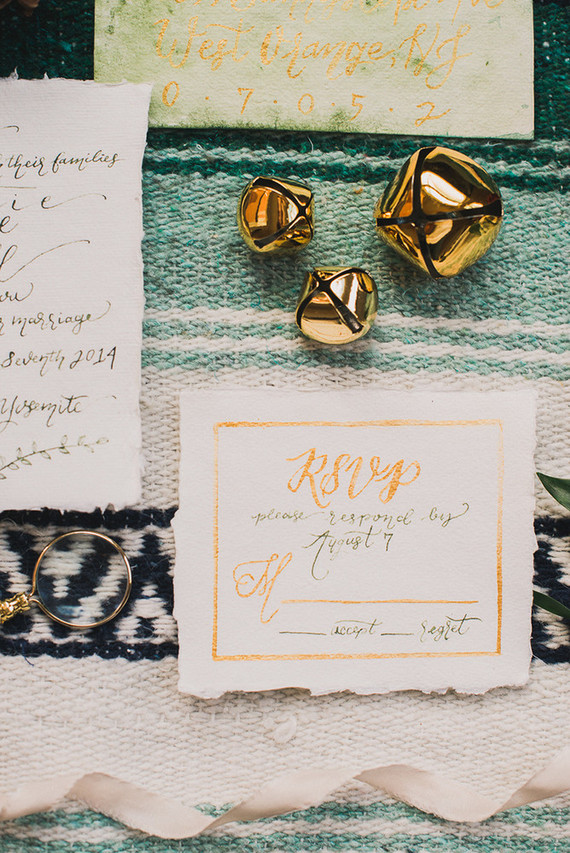 West Orange, NJ
0 · 7 · 0 · 5 · 2
their families
marriage
Seventh 2014
Yosemite
RSVP
please respond by
August 7
M
accept regret